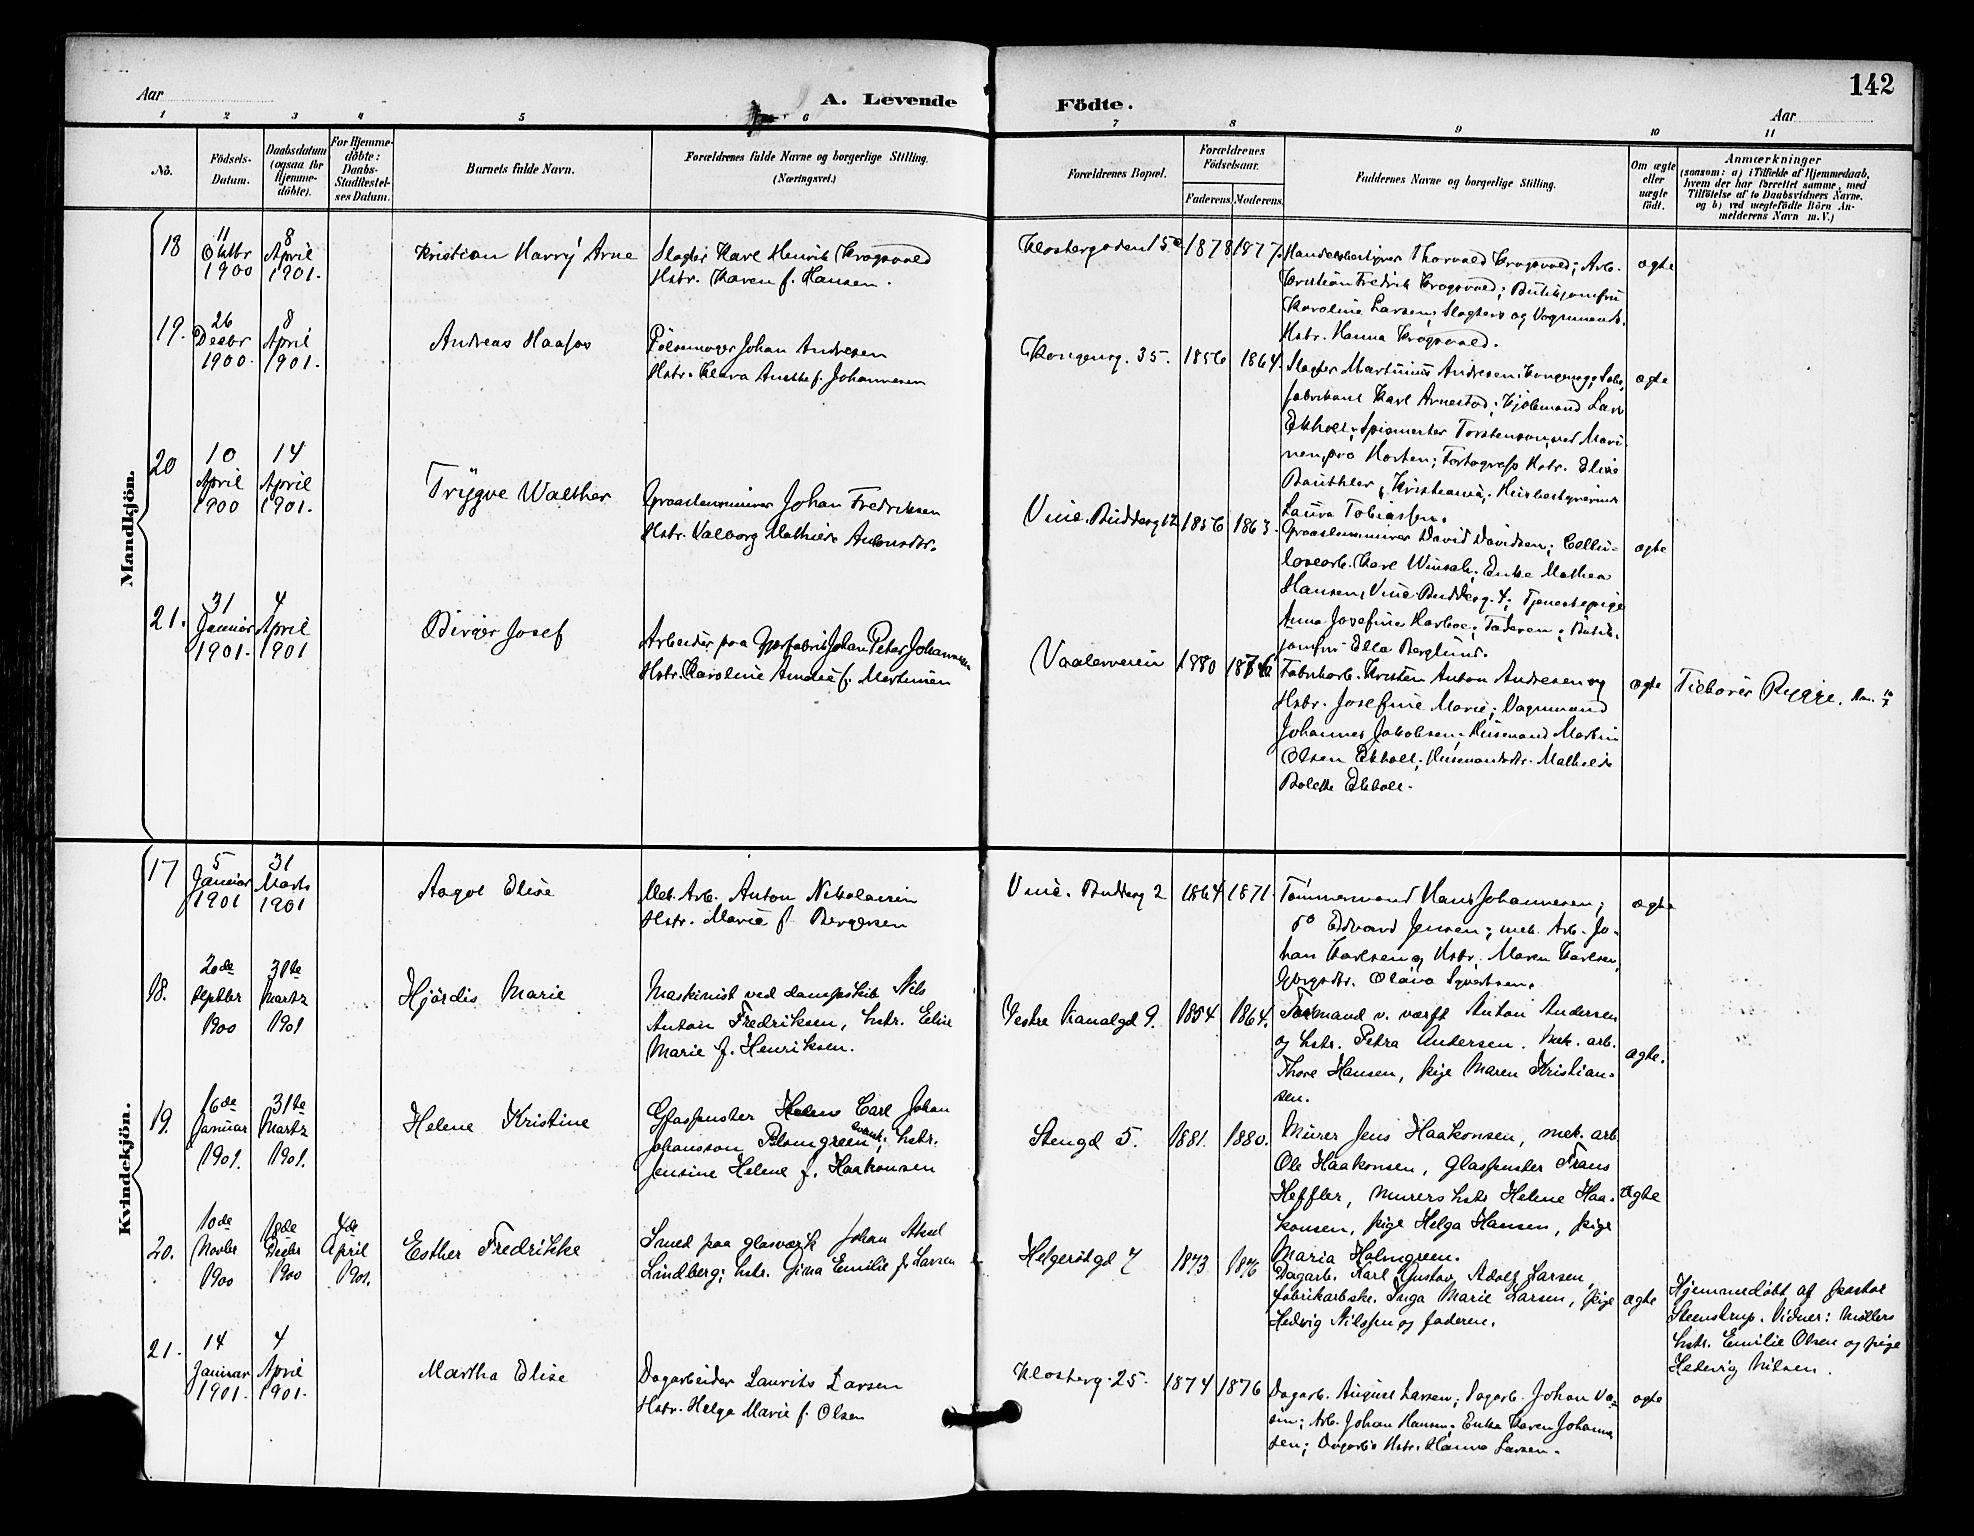 142
Aar
A. Levende Födte.
Aar
1 2 3 4 5 6 7 8 9 10 11
No.
Födsels-Datum.
Daabsdatum (ogsaa for Hjemme-döbte).
For Hjemme-döbte: Daabs-Stadfæstel-ses Datum.
Barnets fulde Navn.
Forældrenes fulde Navne og borgerlige Stilling.
(Næringsvei.)
Forældrenes Bopæl.
Forældrenes Födselsaar.
Faderens. Moderens.
Faddernes Navne og borgerlige Stilling.
Om ægte eller uægte födt.
Anmærkninger
(saasom: a) i Tilfælde af Hjemmedaab,
hvem der har forrettet samme, med
Tilföielse af to Daabsvidners Navne.
og b) ved uægtefödte Börn An-
melderens Navn m. V.)
Mandkjön.
18
11 Oktbr 1900
8 April 1901.
Kristian Harry Arne
Slagter Karl Henrik Krogsvold
Hstr. Karen f. Hansen.
Klostergaden 15
1878
1877.
Handelsbestyrer Thorvald Krogsvold; Arb.
Kristian Fredrik Krogsvold; Butikjomfru
Karoline Larsen; Slagters og Vognmands
Hstr. Hanna Krogsvold.
ægte
19.
26 Decbr 1900.
8 April 1901.
Andreas
Pölsemager Johan Andresen
Hstr. Klara Anette f. Johannesen
Kongensg. 35.
1856
1864.
Slagter Martinius Andresen, Kongensg;
fabrikant Karl Arnestad; Lars
Ekholt; Torstenson, ved Mari-
nen, paa Horten; Fotograf Hstr. Elise
Kristiania; Husbestyrerinde
Laura Tobiassen.
ægte
20
10 April 1900
14 April 1901.
Trygve Walther
Graastensmurer Johan Fredriksen
Hstr. Valborg Mathilde Antonsdtr.
Vinc. Buddesg 12
1856
1863.
Graastensmurer David Davidsen; Cellu-
losearb. Karl Enke Mathea
Hansen, Vinc. Buddesg. 4; Tjenestepige
Anna Josefine Faderen; Butik-
jomfru Ella Berglund.
ægte
21.
31 Januar 1901.
4 April 1901
Birger Josef
Arbeider paa Johan Peter Johannesen
Hstr. Karoline Amalie f. Martinsen
Vaalerveien
1880
1876
Fabrikarb. Kristen Anton Andresen og
Hstr. Josefine Marie; Vognmand
Johannes Jakobsen; Husmand Martin
Olsen Ekholt; Husmandsdtr. Mathilde
Bolette Ekholt.
ægte
Tilhører Rygge.
Kvindekjön.
17
5 Januar 1901
31 Marts 1901
Aagot Elise
Mek. Arb. Anton Nikolaisen
Hstr. Marie f. Bergersen
Vinc. Buddesg 2
1864
1871.
Tømmermand Hans Johannesen;
do Edvard Jensen; mek. Arb. Jo-
han Karlsen og Hstr. Maren Karlsen,
Olava Syvertsen.
ægte
18.
20de Septbr 1900
31te Marts 1901
Hjördis Marie
Maskinist ved dampskib Nils
Anton Fredriksen, hstr. Elise
Marie f. Henriksen.
Vestre Kanalgd 9.
1854
1864.
Formand v. værft Anton Andersen
og hstr. Petra Andersen. Mek. arb.
Thore Hansen, pige Maren Kristian-
sen.
ægte.
19.
16de Januar 1901.
31te Marts 1901.
Helene Kristine
Glaspuster Carl Johan
Johansson Blomgreen, svensk; hstr.
Jensine Helene f. Haakonsen
Stengd 5.
1881.
1880.
Murer Jens Haakonsen, mek. arb
Ole Haakonsen, glaspuster Frans
Heffler, murers hstr Helene Haa-
konsen, pige Helga Hansen, pige
Maria Holmgreen.
ægte
20.
10de Novbr 1900
18de Decbr 1900
4de April 1901.
Esther Fredrikke
Smed paa glasværk Johan Aksel
Lindberg; hstr. Gina Emilie f. Larsen
Helgerödgd 7
1873
1876
Dagarb. Karl Gustav Adolf Larsen,
fabrikarbske. Inga Marie Larsen, pige
Hedvig Nilssen og faderen.
ægte
Hjemmedøbt af
Steenstrup. Vidner: Møllers
hstr. Emilie Olsen og pige
Hedevig Nilsen.
21.
14 Januar 1901.
4 April 1901.
Martha Elise
Dagarbeider Laurits Larsen
Hstr. Helga Marie f. Olsen
Klosterg. 25.
1874
1876
Dagarb. August Larsen; Dagarb. Johan
Arb. Johan Hansen; Enke Karen Johanne-
sen; Dagarbs Hstr. Hanna Larsen.
ægte